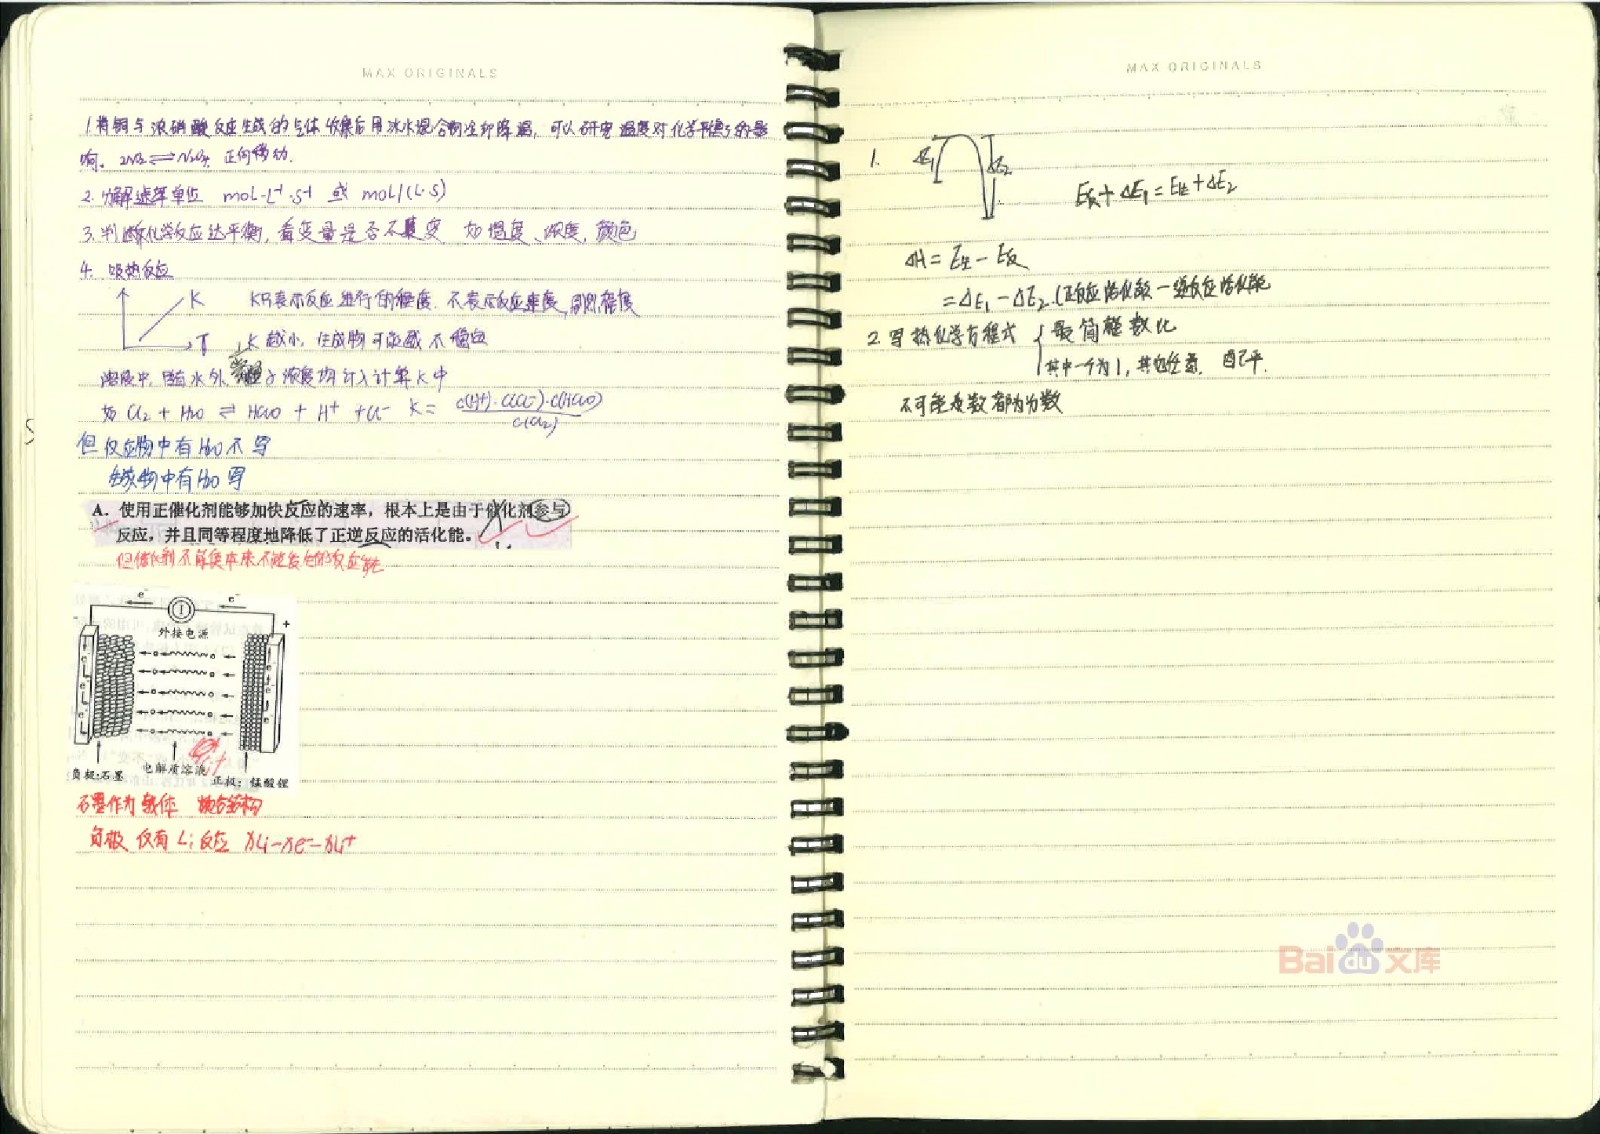 MAX ORIGINALS
1.将铜与浓硝酸反应生成的气体收集后用冰水混合物冷却降温，可以研究温度对化学平衡的影
响。2NO₂⇌N₂O₄ 正向移动.
2. 速率单位 mol·L⁻¹·S⁻¹ 或 mol/(L·S)
3.判断化学反应达平衡，看变量是否不再变 如温度、浓度，颜色
4. 吸热反应
K K只表示反应进行的程度. 不表示反应速度,
T K越小，生成物可能越不稳定
溶液中，除 水外， 子浓度均计入计算K中
如 Cl₂ + H₂O ⇌ HClO + H⁺ + Cl⁻ K= c(H⁺)·c(Cl⁻)·c(HClO) / c(Cl₂)
但反应物中有H₂O不写
生成物中有H₂O写
A. 使用正催化剂能够加快反应的速率，根本上是由于催化剂参与
反应，并且同等程度地降低了正逆反应的活化能。
但催化剂不能使本来不能发生的反应
e⁻ e⁻
- I +
外接电源
e⁻ e⁻
e⁻ e⁻
e⁻ e⁻
Li⁺
负极:石墨 电解质溶液 正极：锰酸锂
石墨作为载体
负极 仅有Li反应 xLi-xe⁻-xLi⁺
MAX ORIGINALS
1. ΔE₁ ΔE₂
E反+ΔE₁=E生+ΔE₂
ΔH= E生 - E反
=ΔE₁-ΔE₂.(正反应活化能-逆反应活化能
2.写热化学方程式 { 最简整数比
其中一个为1，其他任意. 自己平.
不可能系数都为分数
Baidu文库